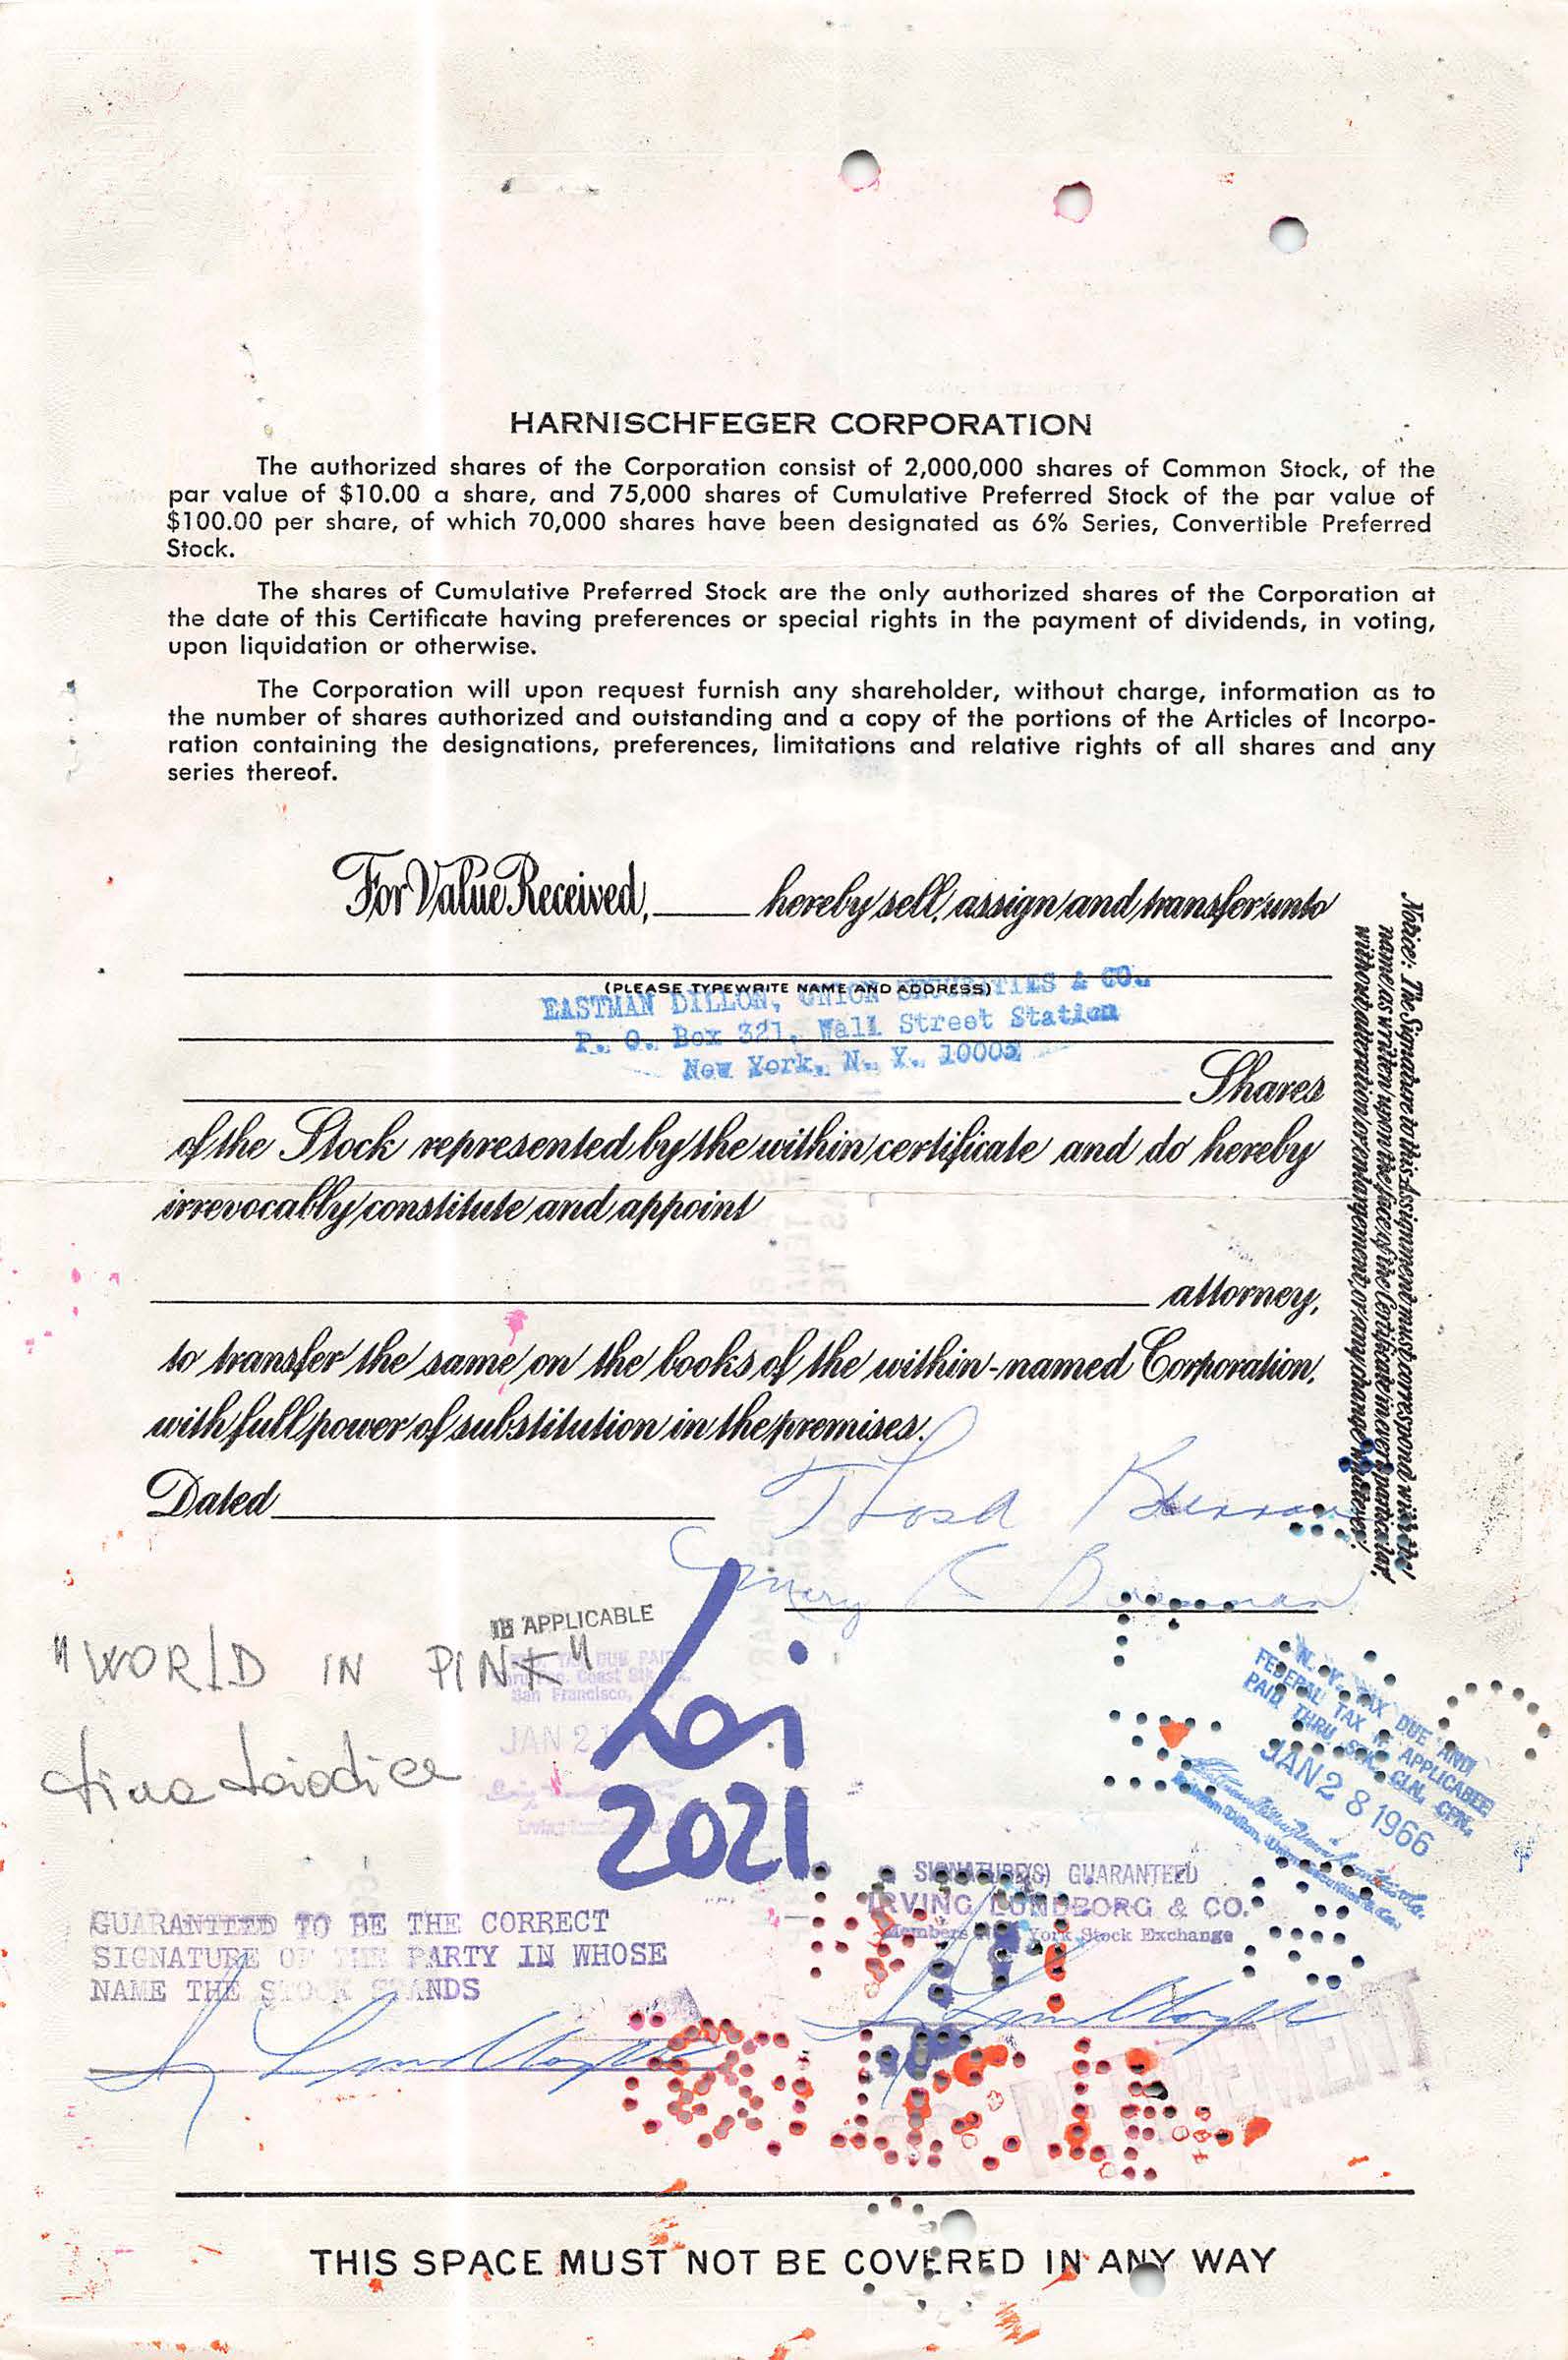 HARNISCHFEGER CORPORATION
The authorized shares of the Corporation consist of 2,000,000 shares of Common Stock, of the
par value of $10.00 a share, and 75,000 shares of Cumulative Preferred Stock of the par value of
$100.00 per share, of which 70,000 shares have been designated as 6% Series, Convertible Preferred
Stock.
The shares of Cumulative Preferred Stock are the only authorized shares of the Corporation at
the date of this Certificate having preferences or special rights in the payment of dividends, in voting,
upon liquidation or otherwise.
The Corporation will upon request furnish any shareholder, without charge, information as to
the number of shares authorized and outstanding and a copy of the portions of the Articles of Incorpo-
ration containing the designations, preferences, limitations and relative rights of all shares and any
series thereof.
For Value Received, hereby sell, assign and transfer unto
(PLEASE TYPEWRITE NAME AND ADDRESS)
EASTMAN DILLON, UNION SECURITIES & CO.
P. O. Box 321, Wall Street Station
New York, N. Y. 10005
Shares
of the Stock represented by the within certificate and do hereby
irrevocably constitute and appoint
attorney,
to transfer the same on the books of the within-named Corporation,
with full power of substitution in the premises.
Dated
Notice: The Signature to this Assignment must correspond with the
name as written upon the face of the Certificate in every particular,
without alteration or enlargement, or any change whatever.
IF APPLICABLE
San Francisco,
JAN 2
"WORLD IN PINK"
Loi
2021
N. Y. TAX DUE AND
FEDERAL TAX IF APPLICABLE
PAID THRU STK. CLR. CPN.
JAN 28 1966
SIGNATURE(S) GUARANTEED
IRVING LUNDBORG & CO.
Members New York Stock Exchange
GUARANTEED TO BE THE CORRECT
SIGNATURE OF THE PARTY IN WHOSE
NAME THE STOCK STANDS
THIS SPACE MUST NOT BE COVERED IN ANY WAY